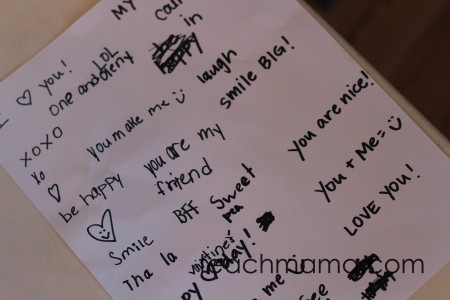 MY
call
in
♡ you!
LOL
One and only
xoxo
Xo
♡
you make me
laugh
smile BIG!
be happy
you are my
friend
Smile
BFF
Sweet
Tha la
day!
You are nice!
You + Me =
LOVE YOU!
me
teachmama.com